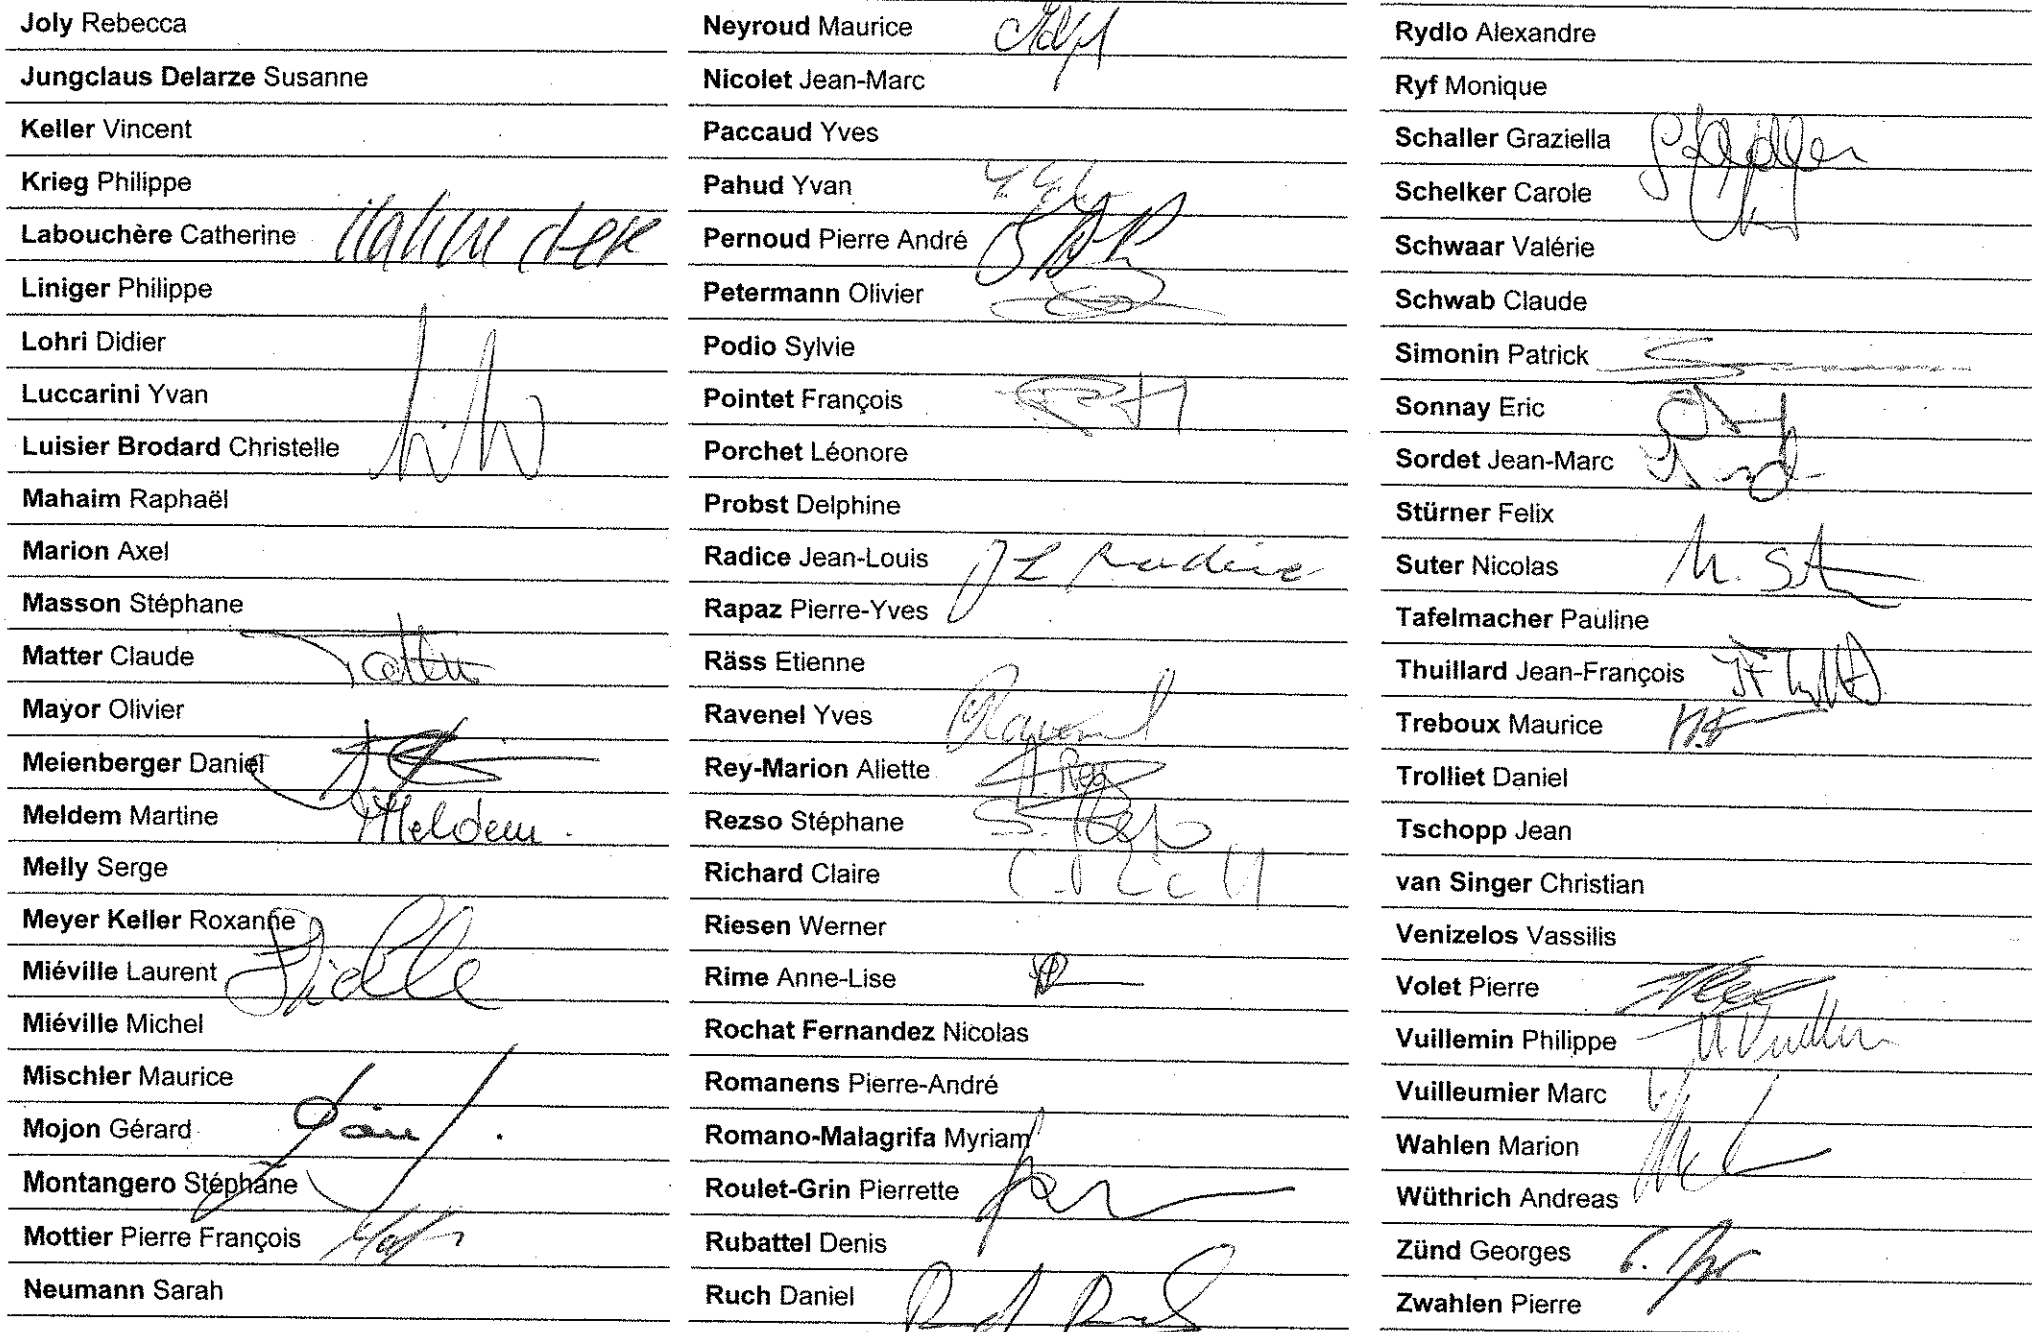 Joly Rebecca
Jungclaus Delarze Susanne
Keller Vincent
Krieg Philippe
Labouchère Catherine
Liniger Philippe
Lohri Didier
Luccarini Yvan
Luisier Brodard Christelle
Mahaim Raphaël
Marion Axel
Masson Stéphane
Matter Claude
Mayor Olivier
Meienberger Daniel
Meldem Martine Meldem.
Melly Serge
Meyer Keller Roxanne
Miéville Laurent
Miéville Michel
Mischler Maurice
Mojon Gérard
Montangero Stéphane
Mottier Pierre François
Neumann Sarah
Neyroud Maurice
Nicolet Jean-Marc
Paccaud Yves
Pahud Yvan
Pernoud Pierre André
Petermann Olivier
Podio Sylvie
Pointet François
Porchet Léonore
Probst Delphine
Radice Jean-Louis JL Radice
Rapaz Pierre-Yves
Räss Etienne
Ravenel Yves
Rey-Marion Aliette
Rezso Stéphane
Richard Claire
Riesen Werner
Rime Anne-Lise
Rochat Fernandez Nicolas
Romanens Pierre-André
Romano-Malagrifa Myriam
Roulet-Grin Pierrette
Rubattel Denis
Ruch Daniel
Rydlo Alexandre
Ryf Monique
Schaller Graziella
Schelker Carole
Schwaar Valérie
Schwab Claude
Simonin Patrick
Sonnay Eric
Sordet Jean-Marc
Stürner Felix
Suter Nicolas
Tafelmacher Pauline
Thuillard Jean-François
Treboux Maurice
Trolliet Daniel
Tschopp Jean
van Singer Christian
Venizelos Vassilis
Volet Pierre
Vuillemin Philippe
Vuilleumier Marc
Wahlen Marion
Wüthrich Andreas
Zünd Georges
Zwahlen Pierre